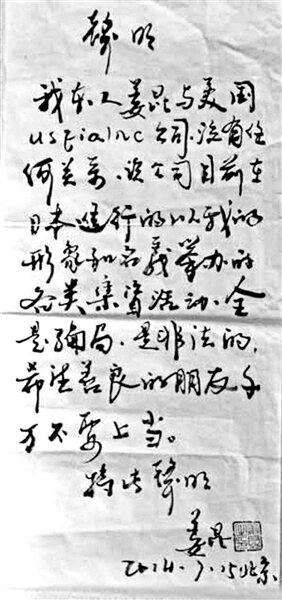 聲明
我本人姜昆与美国
usfia Inc 公司.没有任
何关系.该公司目前在
日本进行的以我的
形象和名义举办的
各类集资活动.全
是骗局.是非法的,
希望善良的朋友千
万不要上当。
特此聲明
姜昆
2014.7.15北京